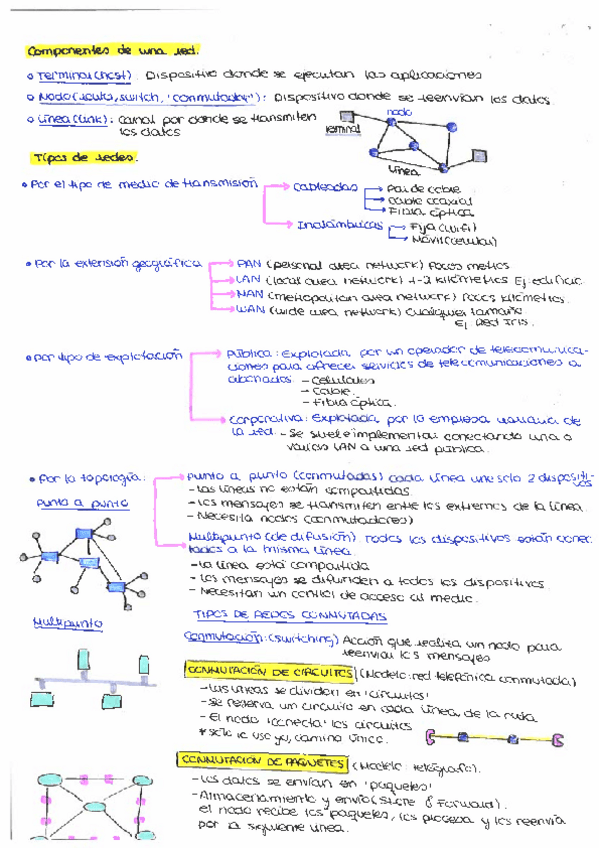 Componentes de una red.
Terminal (host). Dispositivo donde se ejecutan las aplicaciones
Nodo (router, switch, "conmutador"): Dispositivo donde se reenvían los datos.
Línea (link): canal por donde se transmiten
los datos
Terminal
nodo
línea
Tipos de redes.
Por el tipo de medio de transmisión
Cableadas
Par de cobre
Cable coaxial
Fibra óptica
Inalámbricas
Fija (wifi)
Móvil (celular)
Por la extensión geográfica
PAN (personal area network) Pocos metros
LAN (local area network) 1-2 kilómetros Ej: edificio.
MAN (metropolitan area network) Pocos kilómetros.
WAN (wide area network) Cualquier tamaño.
Ej. Red Iris.
Por tipo de explotación
Pública: Explotada por un operador de telecomunica-
ciones para ofrecer servicios de telecomunicaciones a
abonados - Celulares
- Cable.
- Fibra óptica.
Corporativa: Explotada por la empresa usuaria de
la red. - Se suele implementar conectando una o
varias LAN a una red pública.
Por la topología:
Punto a punto (conmutadas) cada línea une solo 2 dispositi-
vos
- Las líneas no están compartidas.
- Los mensajes se transmiten entre los extremos de la línea.
- Necesita nodos (conmutadores)
Punto a punto
Multipunto (de difusión). Todos los dispositivos están conec-
tados a la misma línea.
- La línea está compartida
- Los mensajes se difunden a todos los dispositivos.
- Necesitan un control de acceso al medio.
Multipunto
TIPOS DE REDES CONMUTADAS
Conmutación: (switching) Acción que realiza un nodo para
reenviar los mensajes
CONMUTACIÓN DE CIRCUITOS (Modelo: red telefónica conmutada)
- Las líneas se dividen en 'circuitos'
- Se reserva un circuito en cada línea, de la ruta
- El nodo 'conecta' los circuitos
* Solo lo uso yo, camino único.
CONMUTACIÓN DE PAQUETES (Modelo: telégrafo).
- Los datos se envían en 'paquetes'
- Almacenamiento y envío (Store & Forward).
el nodo recibe los paquetes, los procesa y los reenvía
por la siguiente línea.